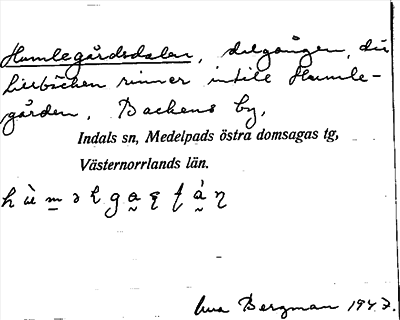 Humlegårdsdalen, dalgången, där
Lisbäcken rinner intill Humle-
gården, Backens by,
Indals sn, Medelpads östra domsagas tg,
Västernorrlands län.
Bergman 1947.